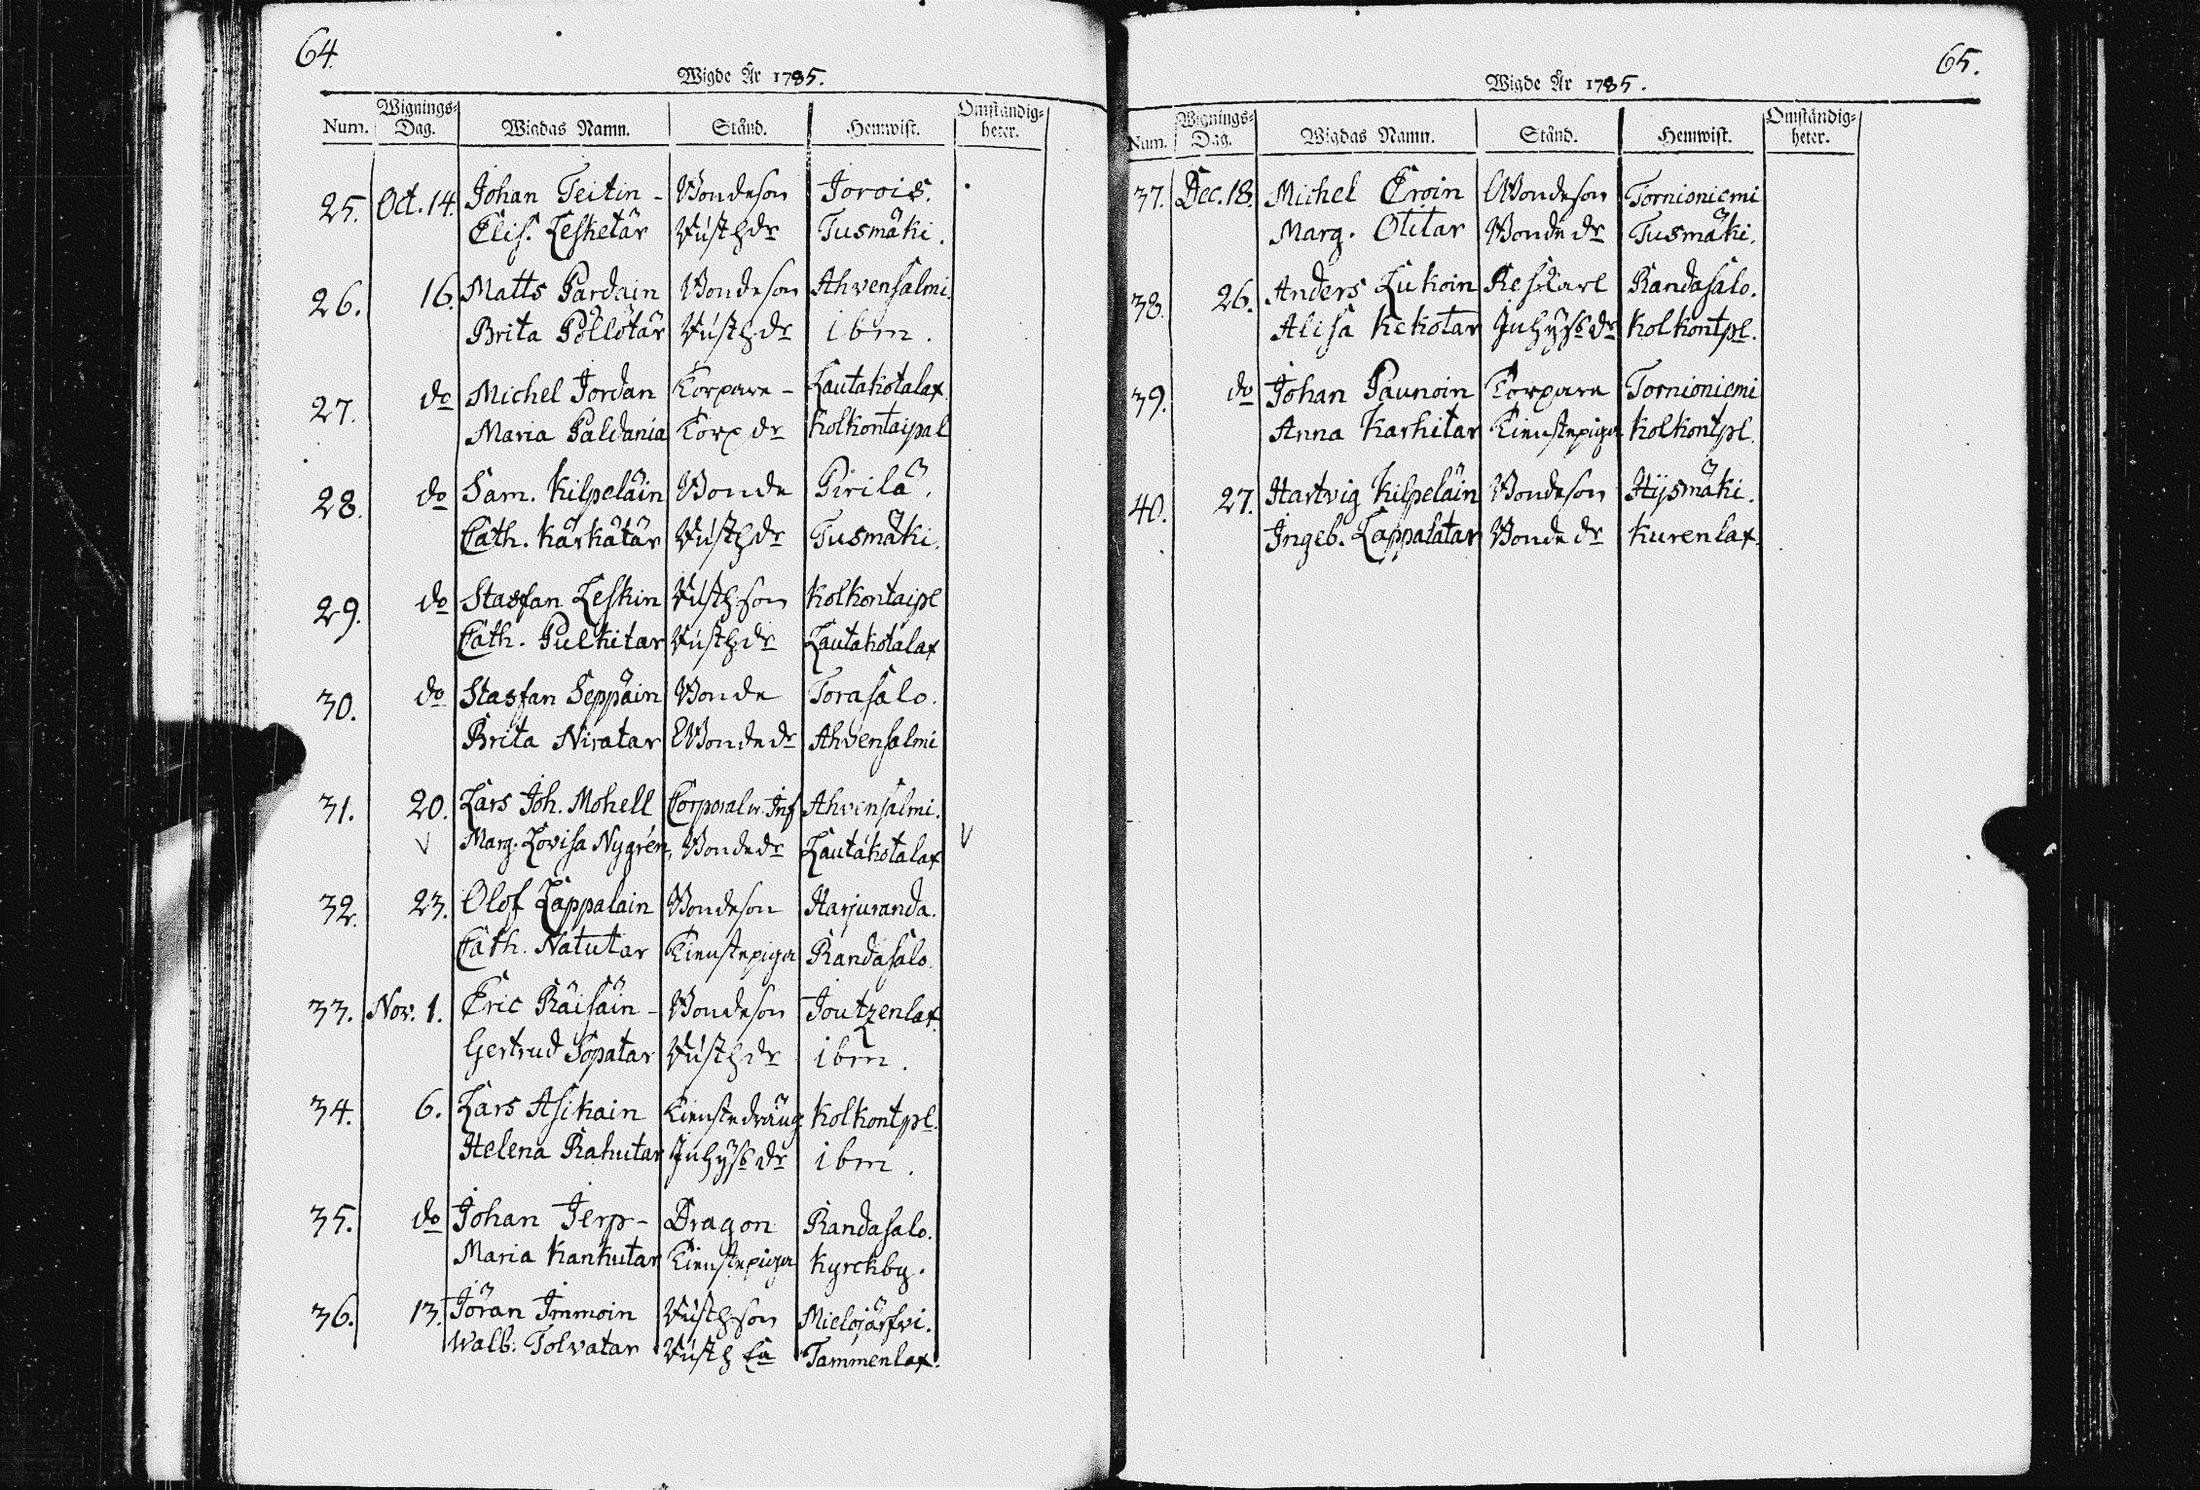 64.
Wigde År 1785.
Num. Wignings-Dag. Wigdas Namn. Stånd. Hemwist. Omständig-heter.
25. Oct. 14. Johan Teitin - Bondeson Jorois.
Elis. Lesketär Lusth dr Tusmäki.
26. 16. Matts Pardain Bondeson Ahvensalmi.
Brita Pöllötär Lusth dr ibm.
27. do Michel Jordan Torpare - Lautakotalax
Maria Paldania Torp dr Kolkontaipal
28. do Sam. Kilpeläin Bonde Pirilä.
Cath. Kärkätär Lusth dr Tusmäki.
29. do Staffan Leskin Lusth son Kolkontaipl
Cath. Pulkitar Lusth dr Lautakotalax
30. do Staffan Seppäin Bonde Torasalo.
Brita Niratar Bonde dr Ahvensalmi
31. 20. Lars Joh. Mohell Corporal Inf Ahvensalmi.
Marg. Lovisa Nygrén, Bonde dr Lautakotalax
32. 23. Olof Lappalain Bondeson Harjuranda.
Cath. Natutar Tienstepiga Randasalo.
33. Nov. 1. Eric Räisäin - Bondeson Joutzenlax.
Gertrud Sopatar Lusth dr ibm.
34. 6. Lars Asikain Tienstedräng Kolkontpl.
Helena Rahutar Inhyss dr ibm.
35. do Johan Jerp - Dragon Randasalo.
Maria Kankutar Tienstepiga Kyrckby.
36. 13. Jöran Immoin Lusth son Mielojärfvi.
Walb: Tolvatar Lusth Ea Tammenlax.
65.
Wigde År 1785.
Num. Wignings-Dag. Wigdas Namn. Stånd. Hemwist. Omständig-heter.
37. Dec. 18. Michel Eroin Bondeson Tornioniemi
Marg. Otitar Bonde dr Tusmäki.
38. 26. Anders Lukoin Randasalo.
Alisa Kekotar Inhyss dr Kolkontpl.
39. do Johan Paunoin Torpare Tornioniemi
Anna Karhitar Tienstepiga Kolkontpl.
40. 27. Hartvig Kilpeläin Bondeson Hysmäki.
Ingeb. Lappalatar Bonde dr Kurenlax.